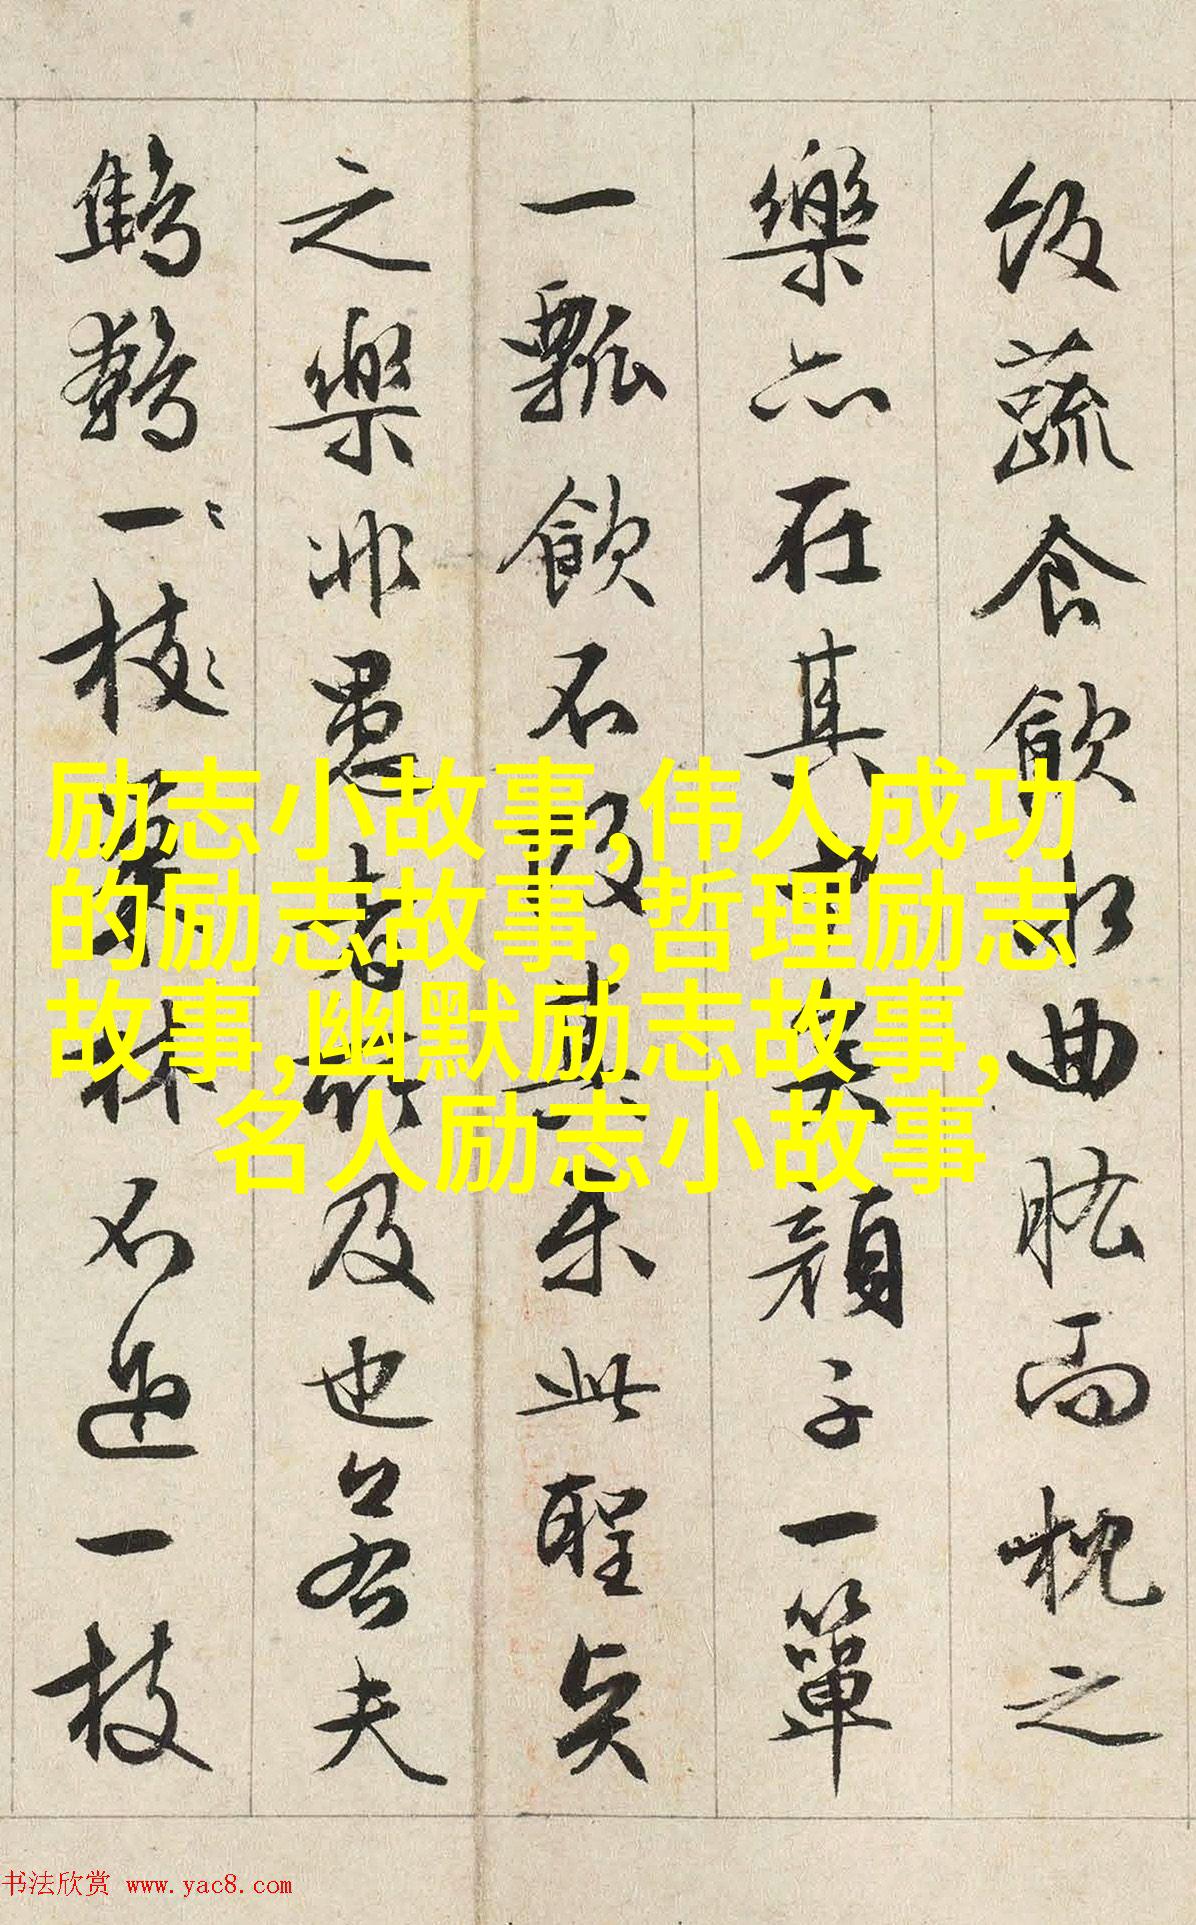 飯蔬食飲水曲肱而枕之
樂亦在其中矣顏子一簞
一瓢飲不改其樂此聖賢
之樂非愚者所及也若夫
鷦鷯一枝巢林不過一枝
励志小故事,伟人成功
的励志故事,哲理励志
故事,幽默励志故事,
名人励志小故事
书法欣赏 www.yac8.com